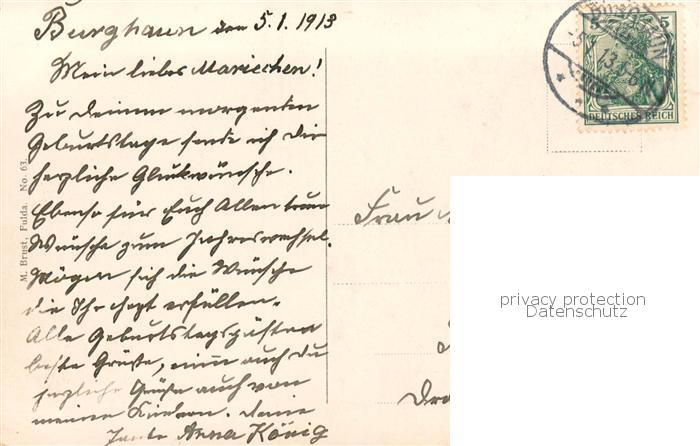 Burghaun den 5.1.1913
Mein liebes Mariechen!
Zu deinem morgenden
Geburtstage sende ich dir
herzliche Glückwünsche.
Ebenso für Euch Allen treue
Wünsche zum Jahreswechsel.
Mögen sich die Wünsche
die Ihr hegt erfüllen.
Alle Geburtstagsgästen
beste Grüße, nimm auch du
herzliche Grüße auch von
meinen Kindern. deine
Tante Anna König
M. Brust, Fulda. No. 63.
5
BURGHAUN
5.1.13.
DEUTSCHES REICH
Frau
privacy protection
Datenschutz